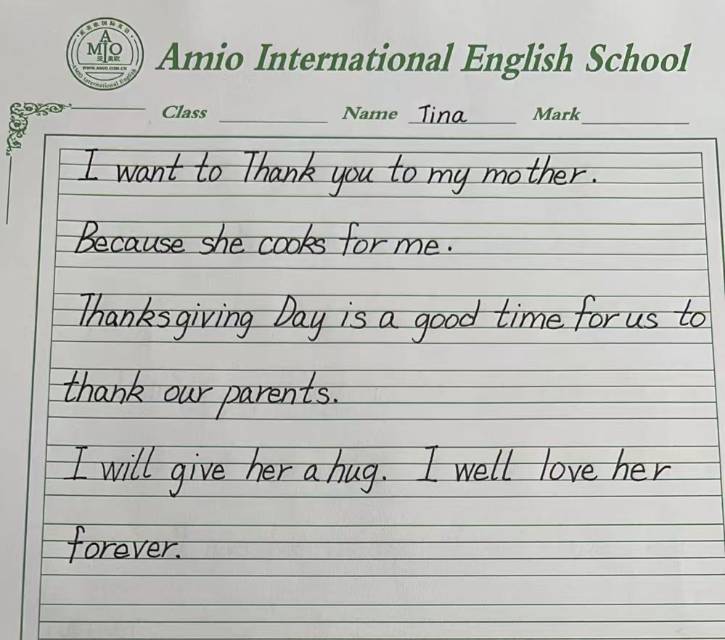 AMIO
WWW.AMIO.COM.CN
Amio International English School
Class Name Tina Mark
I want to Thank you to my mother.
Because she cooks for me.
Thanksgiving Day is a good time for us to
thank our parents.
I will give her a hug. I well love her
forever.